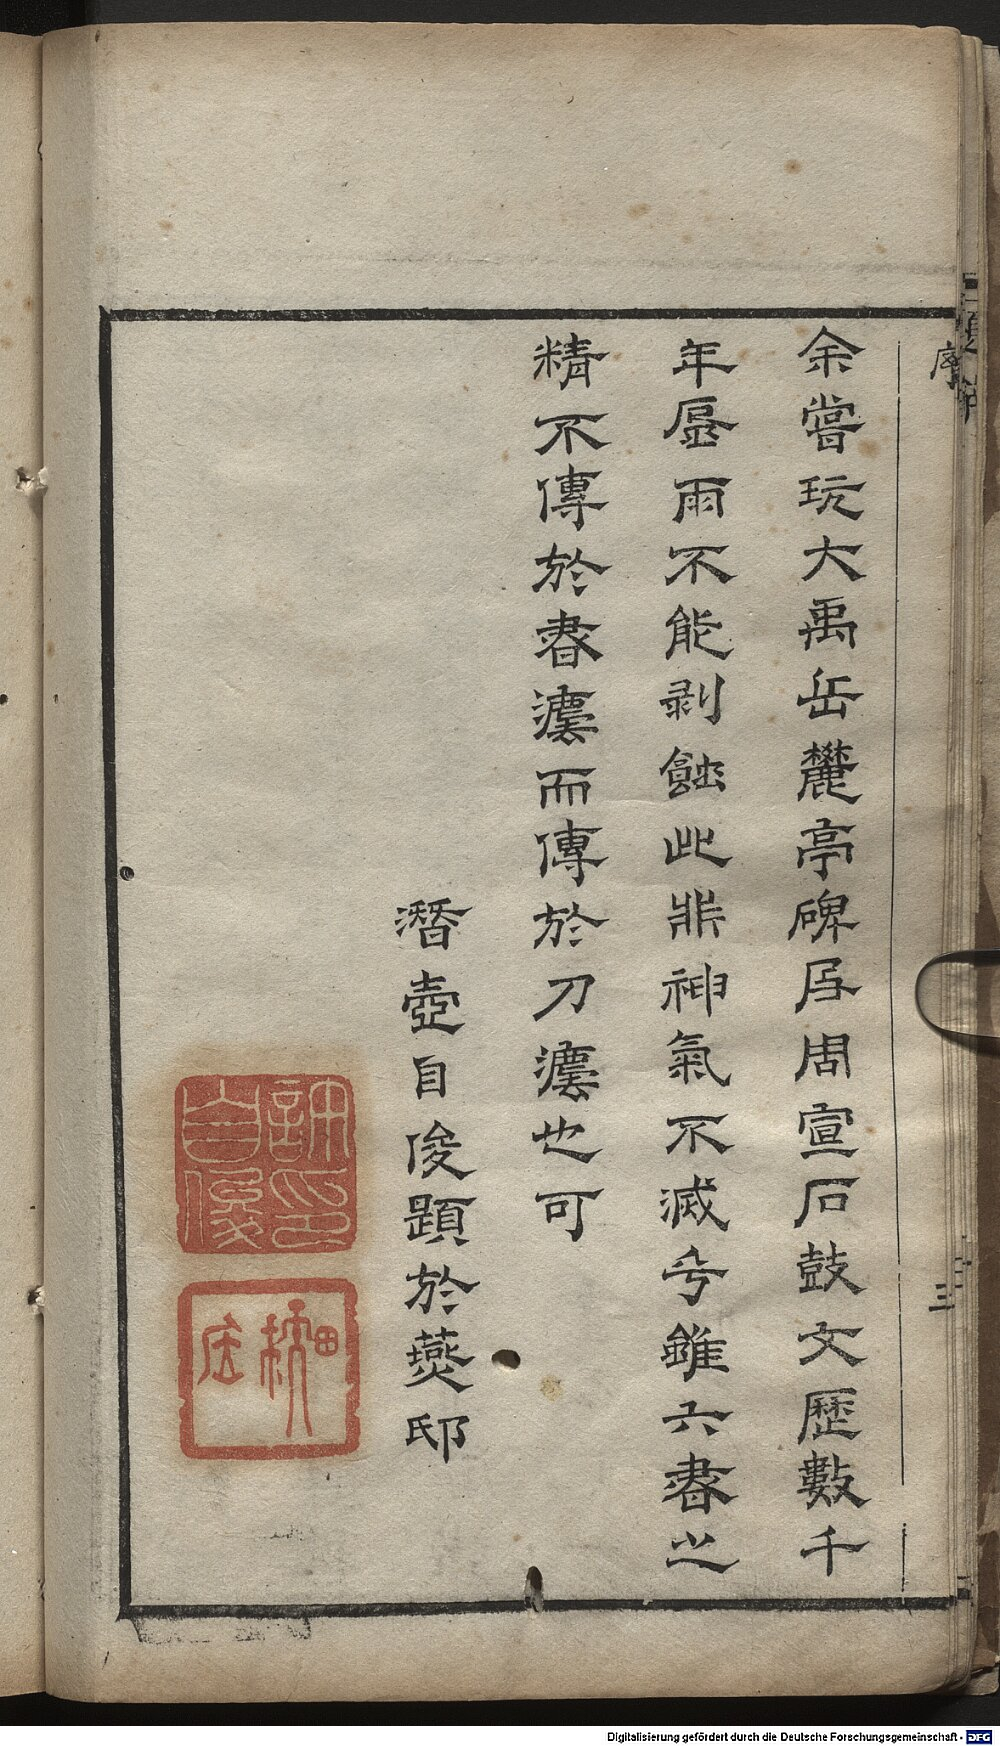 序
三
余嘗玩大禹岳麓亭碑及周宣石鼓文歷數千
年風雨不能剥蝕此非神氣不滅乎雖六書之
精不傳於書還而傳於刀還也可
潛壺自俊題於燕邸
Digitalisierung gefördert durch die Deutsche Forschungsgemeinschaft - DFG